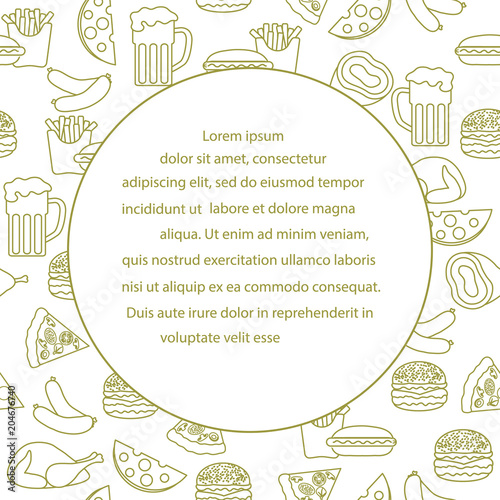 Lorem ipsum
dolor sit amet, consectetur
adipiscing elit, sed do eiusmod tempor
incididunt ut labore et dolore magna
aliqua. Ut enim ad minim veniam,
quis nostrud exercitation ullamco laboris
nisi ut aliquip ex ea commodo consequat.
Duis aute irure dolor in reprehenderit in
voluptate velit esse
Adobe Stock | #204676740